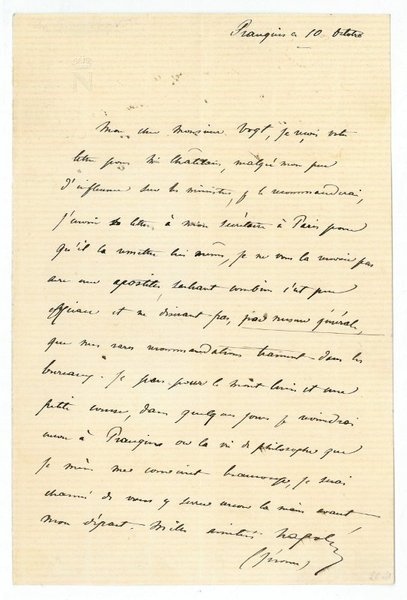 Prangins ce 10 octobre
Mon cher monsieur Vogt, je reçois votre
lettre pour Mr Châtelain, malgré mon peu
d'influence sur les ministres, je le recommanderai,
j'envoie sa lettre, à mon secrétaire à Paris pour
qu'il la remette lui même, je ne vous la renvoie pas
avec une apostille sachant combien c'est peu
efficace et ne désirant pas, par mesure générale,
que mes rares recommandations trainent dans les
bureaux. Je pars pour le mont Cenis et une
petite course, dans quelques jours je reviendrai
encore à Prangins où la vie de philosophe que
je mène me convient beaucoup, je serai
charmé de vous y serrer encore la main avant
mon départ. Milles amitiés Napoléon
(Jérome)